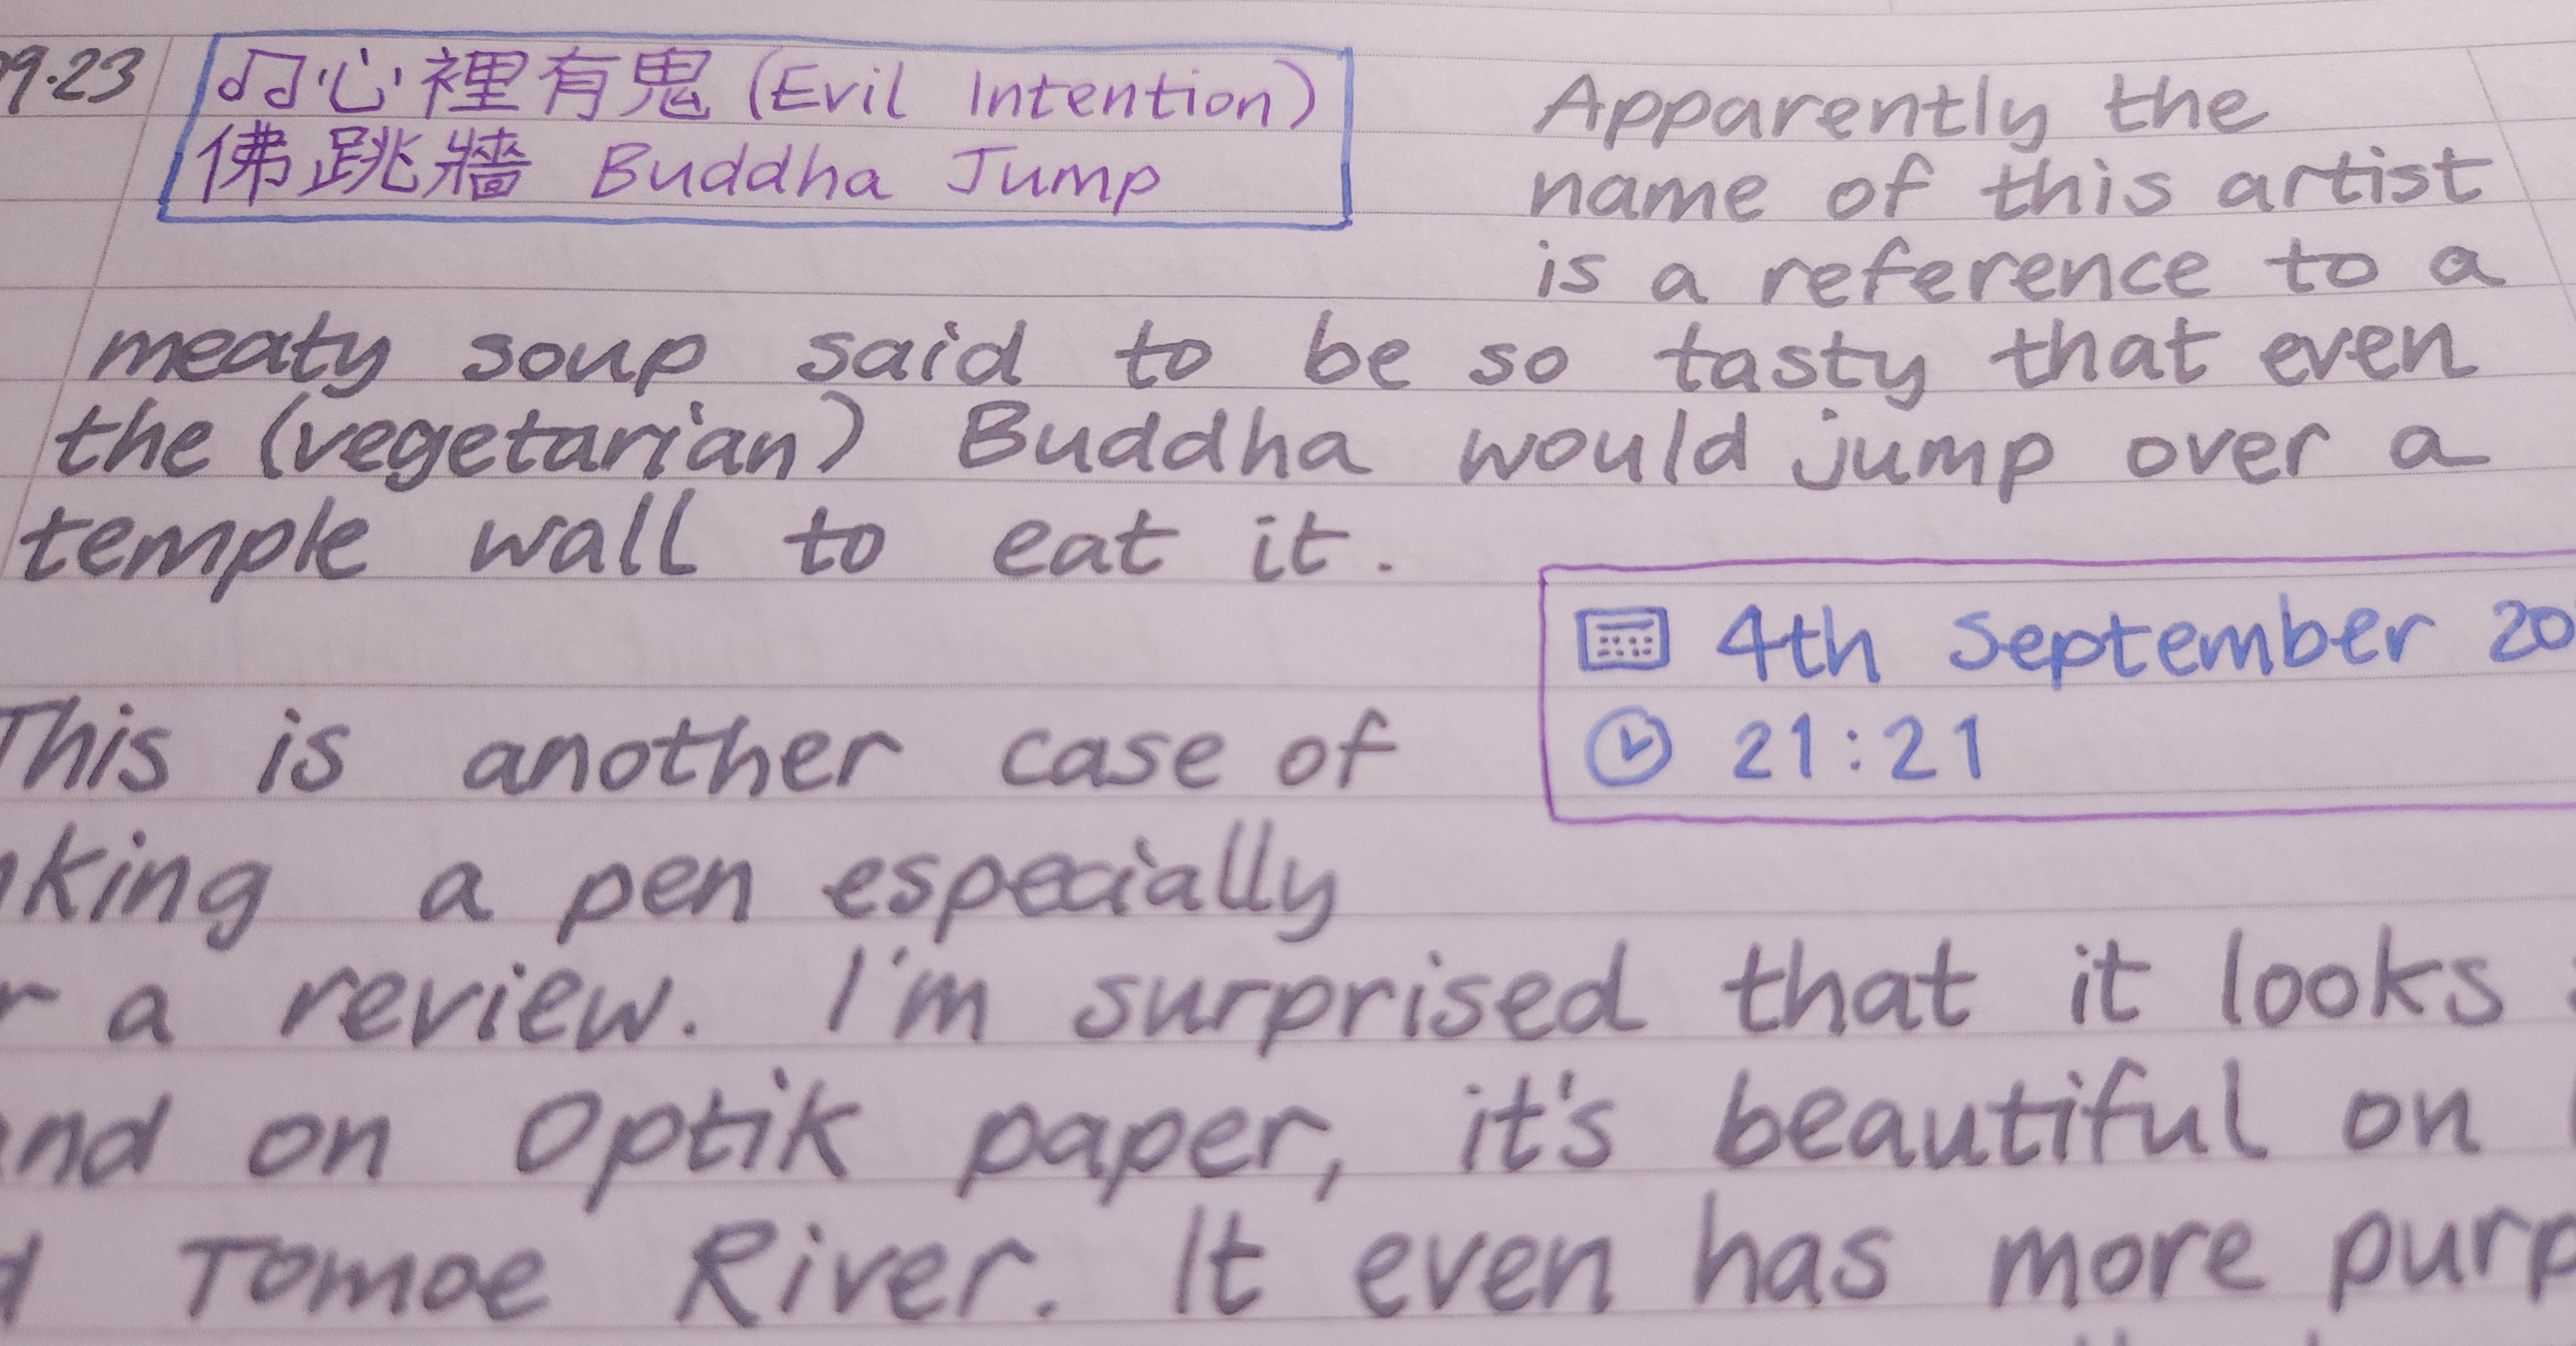 09.23
♫心裡有鬼 (Evil Intention)
佛跳牆 Buddha Jump
Apparently the
name of this artist
is a reference to a
meaty soup said to be so tasty that even
the (vegetarian) Buddha would jump over a
temple wall to eat it.
4th September 20
21:21
This is another case of
a pen especially
a review. I'm surprised that it looks
on Optik paper, it's beautiful on
Tomoe River. It even has more purp